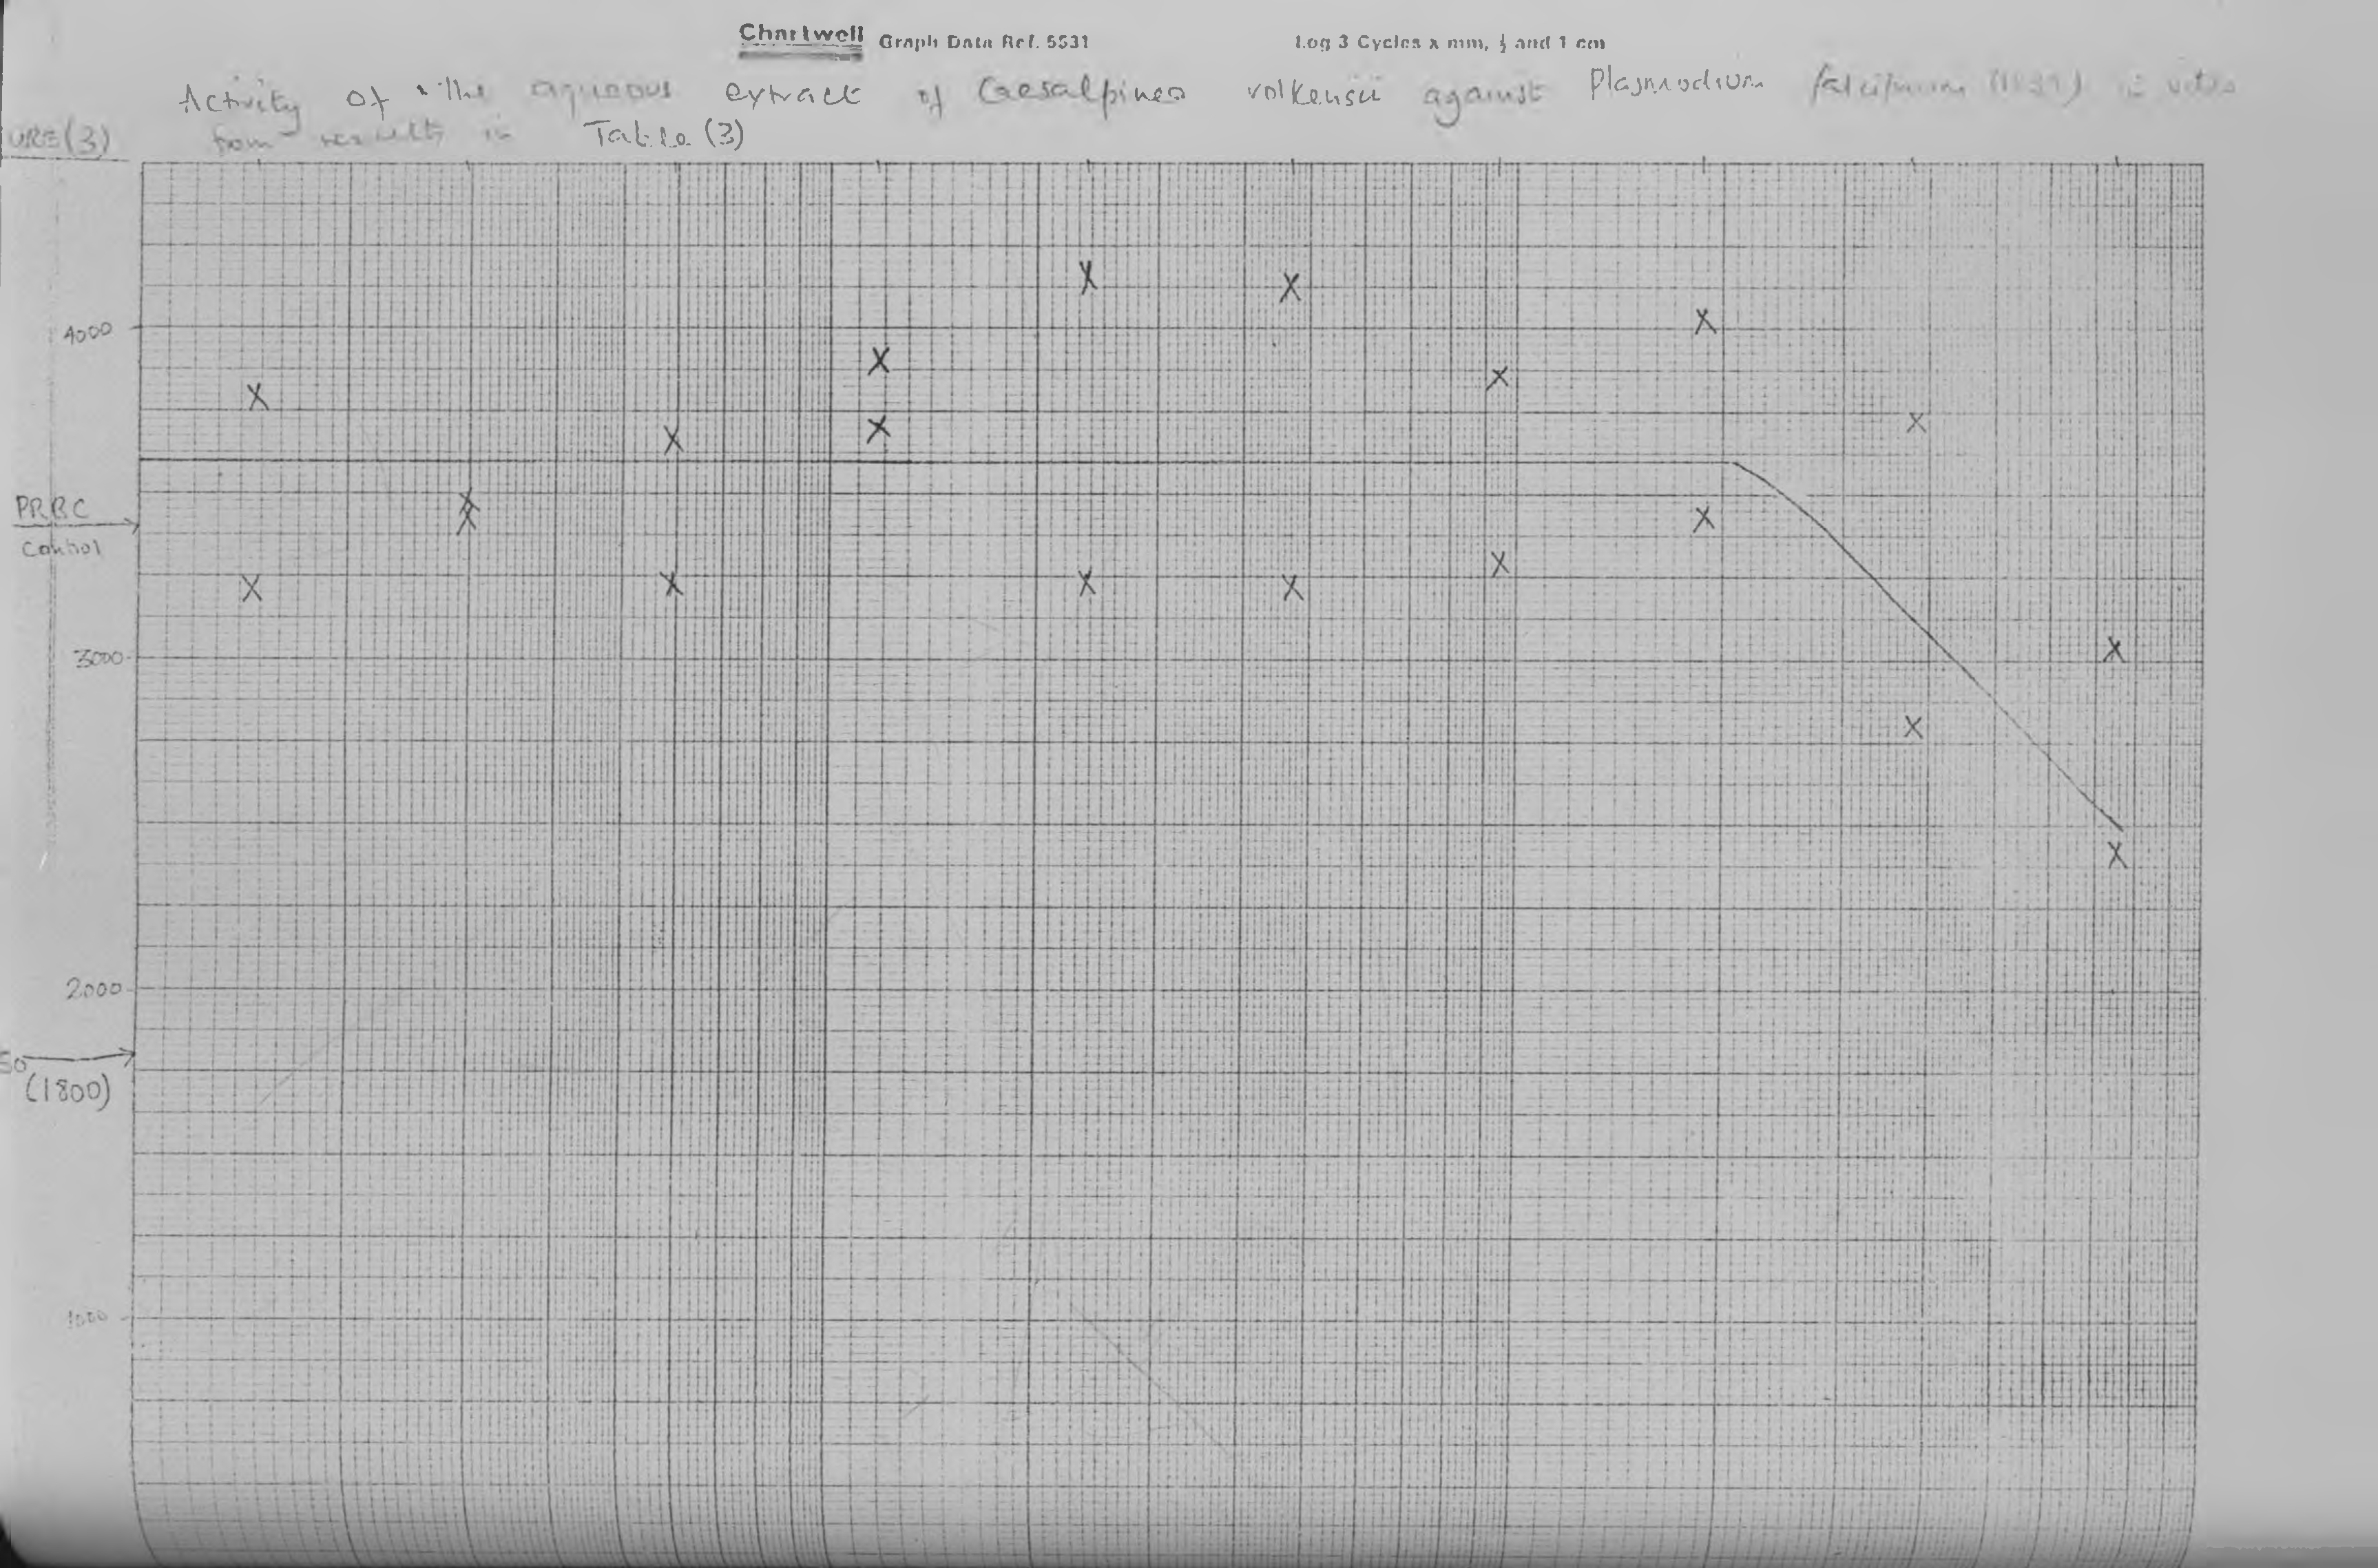 Chartwell Graph Data Ref. 5531 Log 3 Cycles x mm, ½ and 1 cm
Activity of the aqueous extract of Caesalpinea volkensii against Plasmodium falciparum in vitro
URE(3) from results in Table (3)
4000
PRBC
Control
3000
2000
50
(1800)
1000